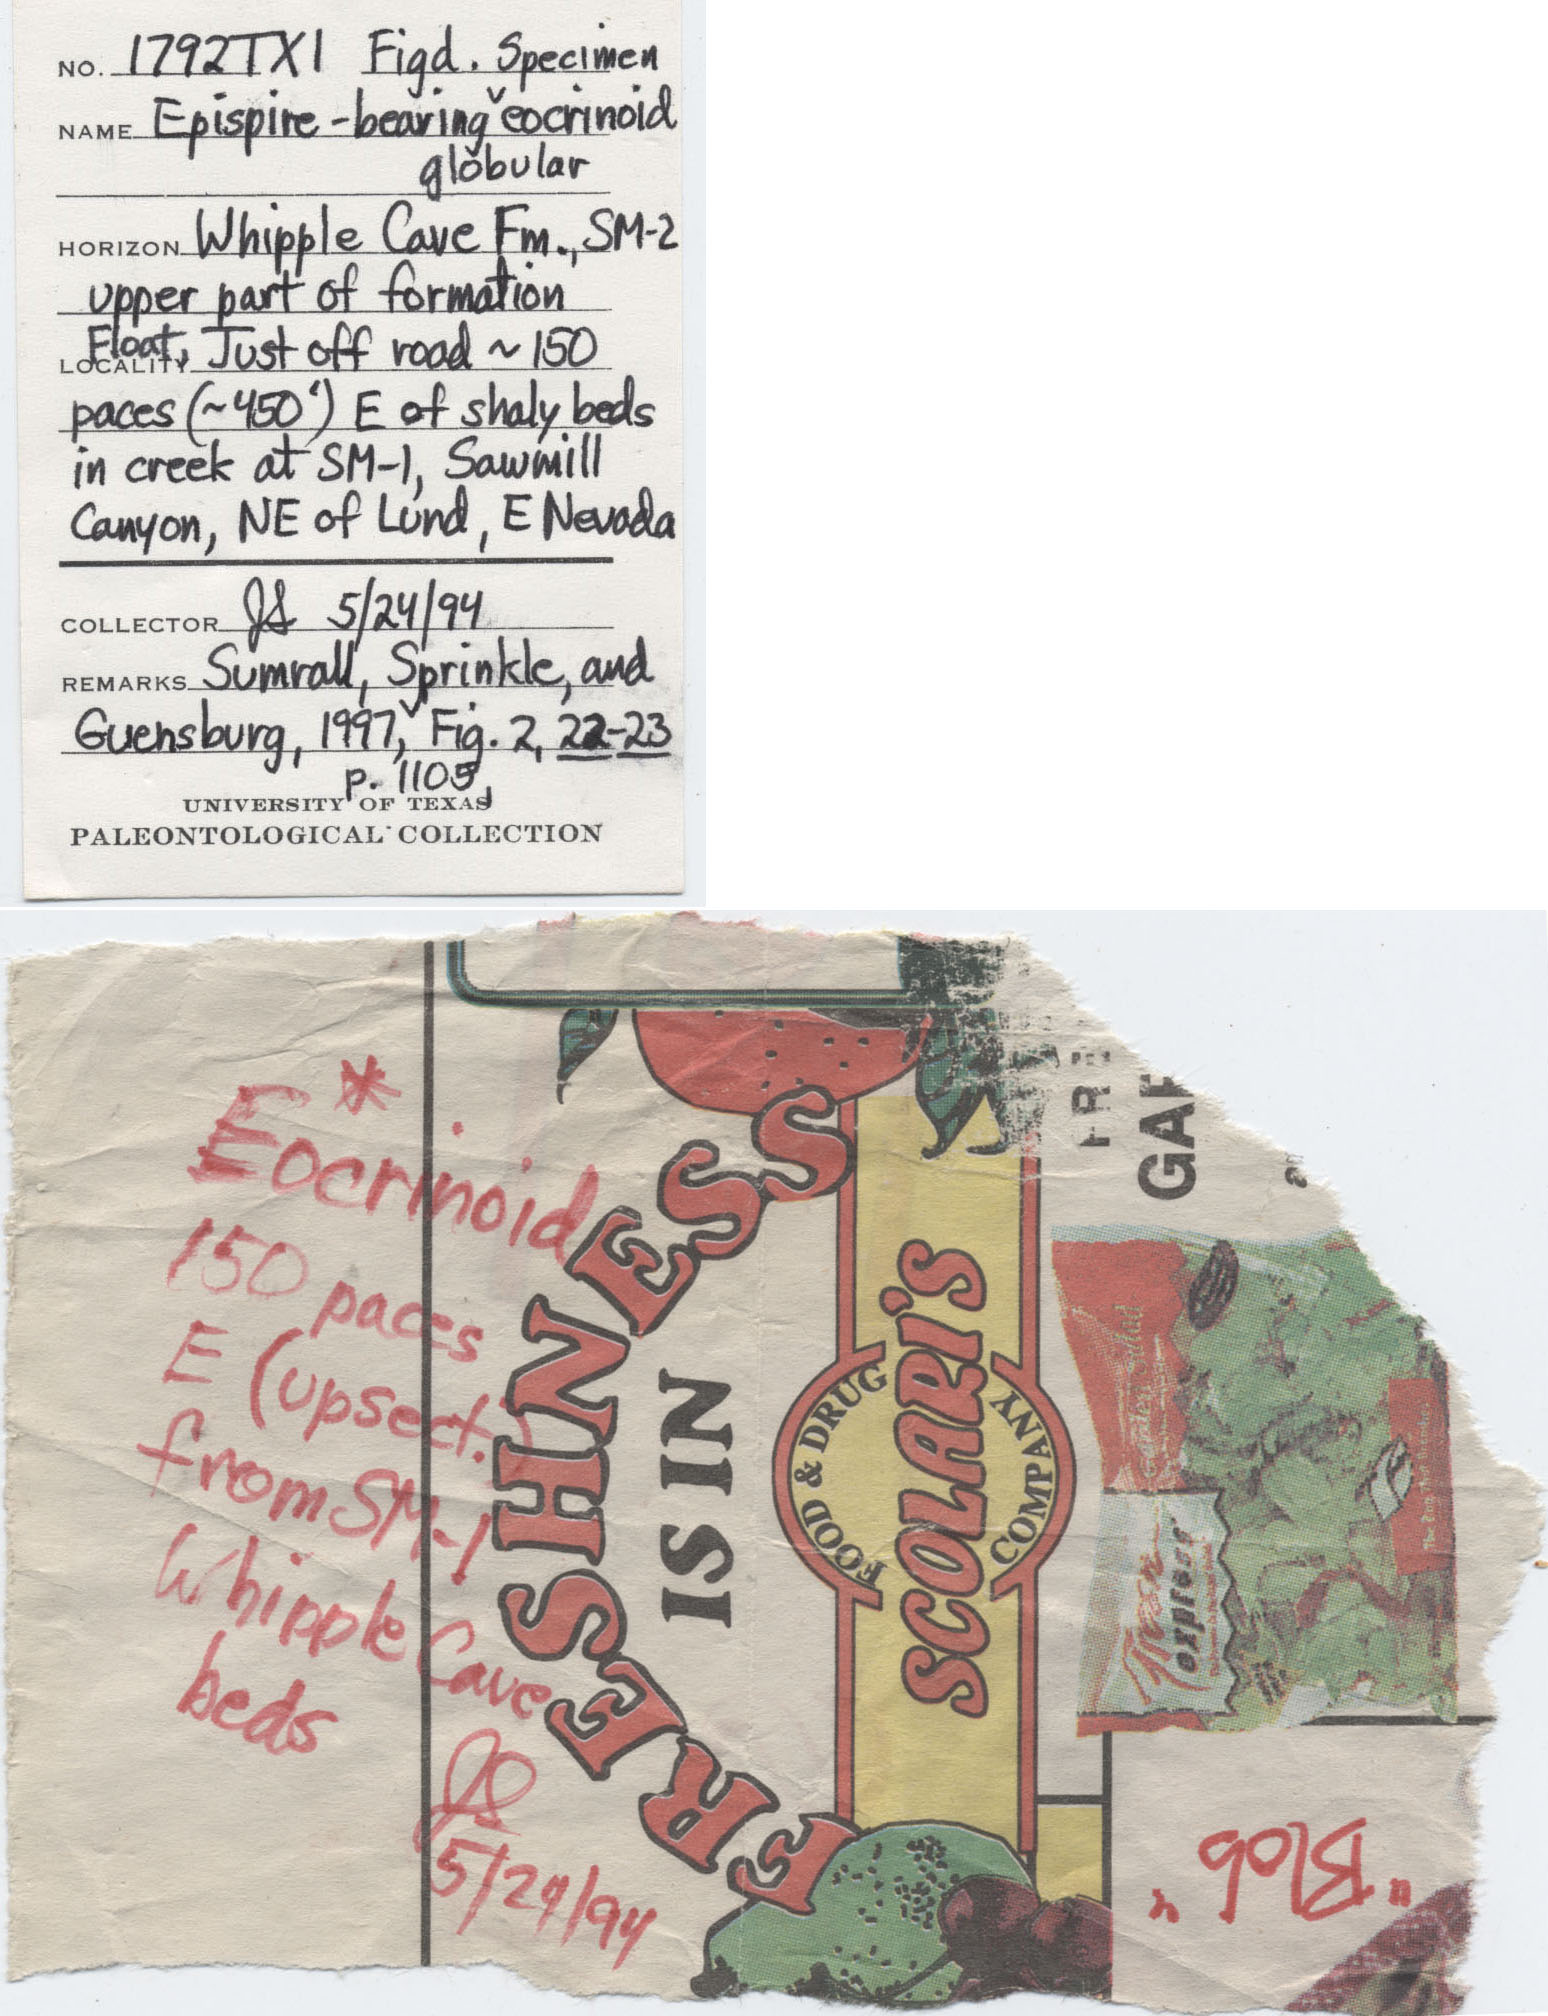 NO. 1792TX1 Figd. Specimen
NAME Epispire-bearing ˅ eocrinoid
globular
HORIZON Whipple Cave Fm., SM-2
upper part of formation
LOCALITY Float, Just off road ~150
paces (~450') E of shaly beds
in creek at SM-1, Sawmill
Canyon, NE of Lund, E Nevada
COLLECTOR JS 5/24/94
REMARKS Sumrall, Sprinkle, and
Guensburg, 1997, ˅ Fig. 2, 22-23
p. 1105,
UNIVERSITY OF TEXAS
PALEONTOLOGICAL COLLECTION
*
Eocrinoid
150 paces
E (upsect.)
from SM-1
Whipple Cave
beds
JS
5/24/94
FRESHNESS
IS IN
FOOD & DRUG
SCOLARI'S
COMPANY
GAR
Garden Salad
Fresh
express
"Blob"